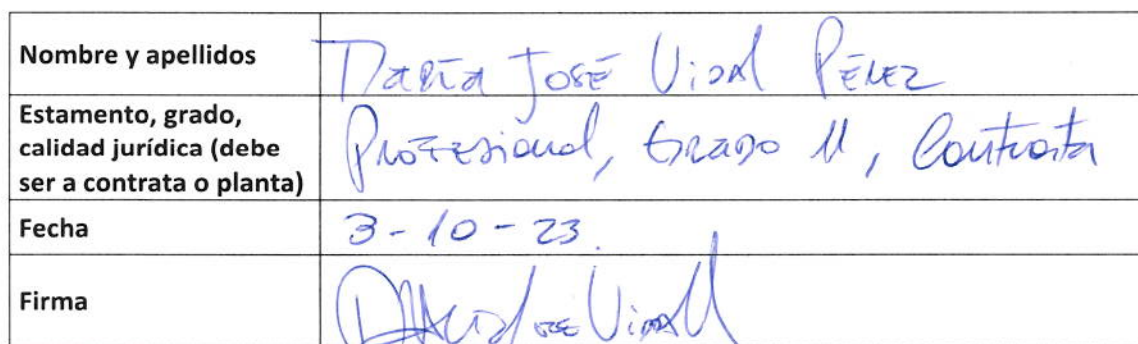 Nombre y apellidos
María José Vidal Pérez
Estamento, grado,
calidad jurídica (debe
ser a contrata o planta)
Profesional, Grado 11, Contrata
Fecha
3-10-23.
Firma